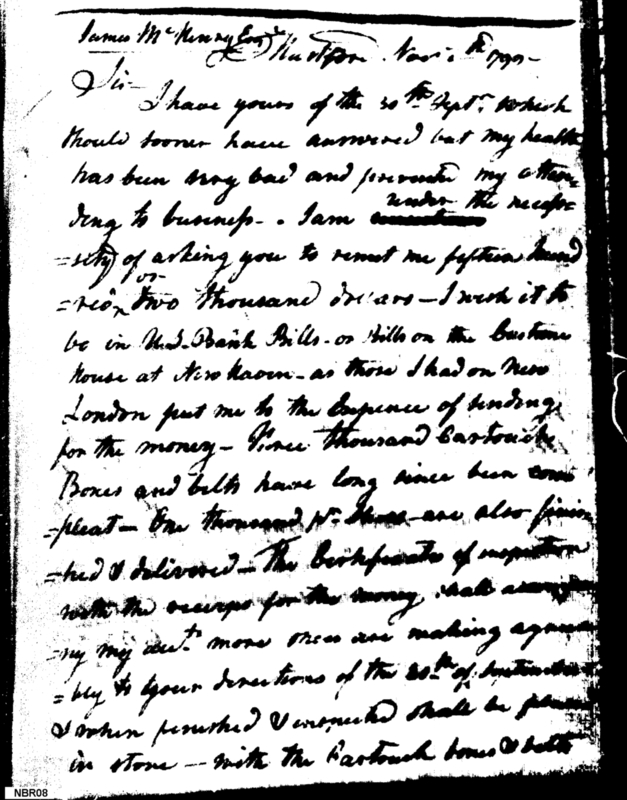 James McHenry Esqr Hartford Novr th 179
Sir
I have yours of the 30th Septr. which
should sooner have answered but my health
has been very bad and prevented my atten=
ding to business - . I am under the necess=
=sity of asking you to remit me fifteen hund
=red or two thousand dollars — I wish it to
be in U.S. Bank Bills - or Bills on the Custom
House at New Haven - as those I had on New
London put me to the Expence of sending
for the money — Three thousand Cartouch
Boxes and belts have long since been com
=pleat — One thousand pr. Shoes are also finis
=hed & delivered — The Certificates of inspection
with the receipts for the money shall accompa
=ny my acts. more ones are making agreea
=bly to your directions of the 20th of September
& when finished & inspected shall be placed
in store — with the Cartouch boxes & belts
NBR08